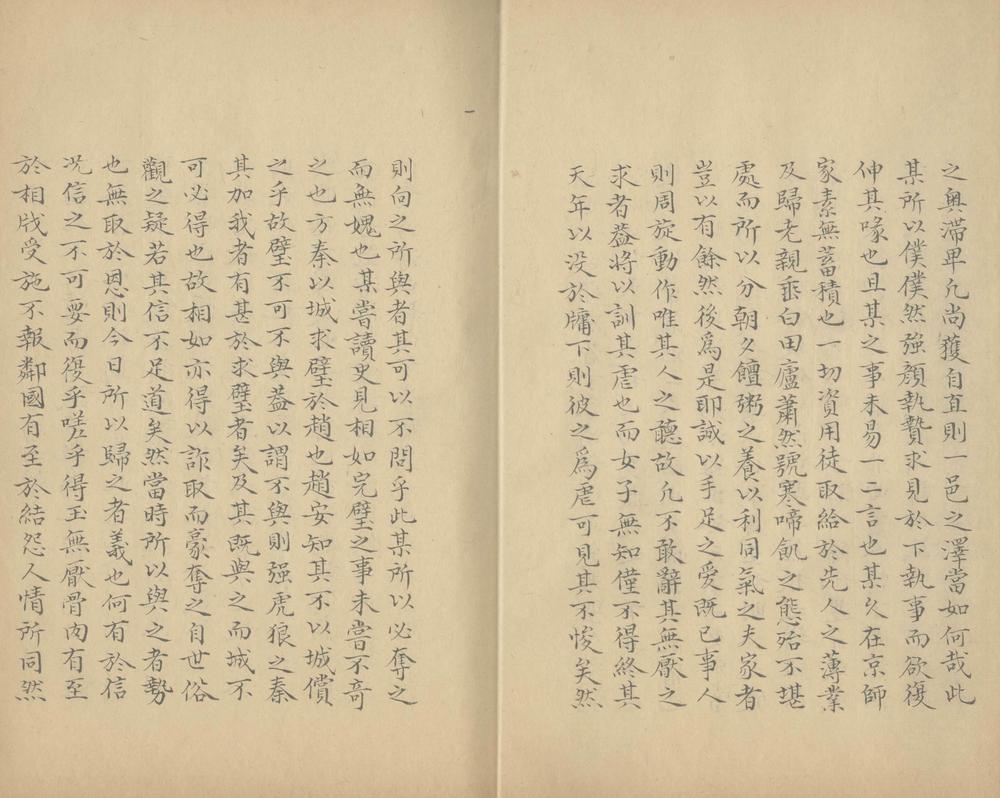 之奥滯卑凡尚獲自直則一邑之澤當如何哉此
某所以僕僕然强顏執贄求見於下執事而欲復
伸其喙也且某之事未易一二言也某久在京師
家素無蓄積也一切資用徒取給於先人之薄業
及歸老親垂白田廬蕭然號寒啼飢之態殆不堪
處而所以分朝夕饘粥之養以利同氣之夫家者
豈以有餘然後爲是耶誠以手足之愛既已事人
則周旋動作唯其人之聽故凡不敢辭其無厭之
求者葢將以訓其虐也而女子無知僅不得終其
天年以没於牖下則彼之爲虐可見其不悛矣然
則向之所與者其可以不問乎此某所以必奪之
而無媿也某嘗讀史見相如完璧之事未嘗不奇
之也方秦以城求璧於趙也趙安知其不以城償
之乎故璧不可不與葢以謂不與則强虎狼之秦
其加我者有甚於求璧者矣及其既與之而城不
可必得也故相如亦得以詐取而豪奪之自世俗
觀之疑若其信不足道矣然當時所以與之者勢
也無取於恩則今日所以歸之者義也何有於信
况信之不可要而復乎嗟乎得玉無厭骨肉有至
於相戕受施不報鄰國有至於結怨人情所同然